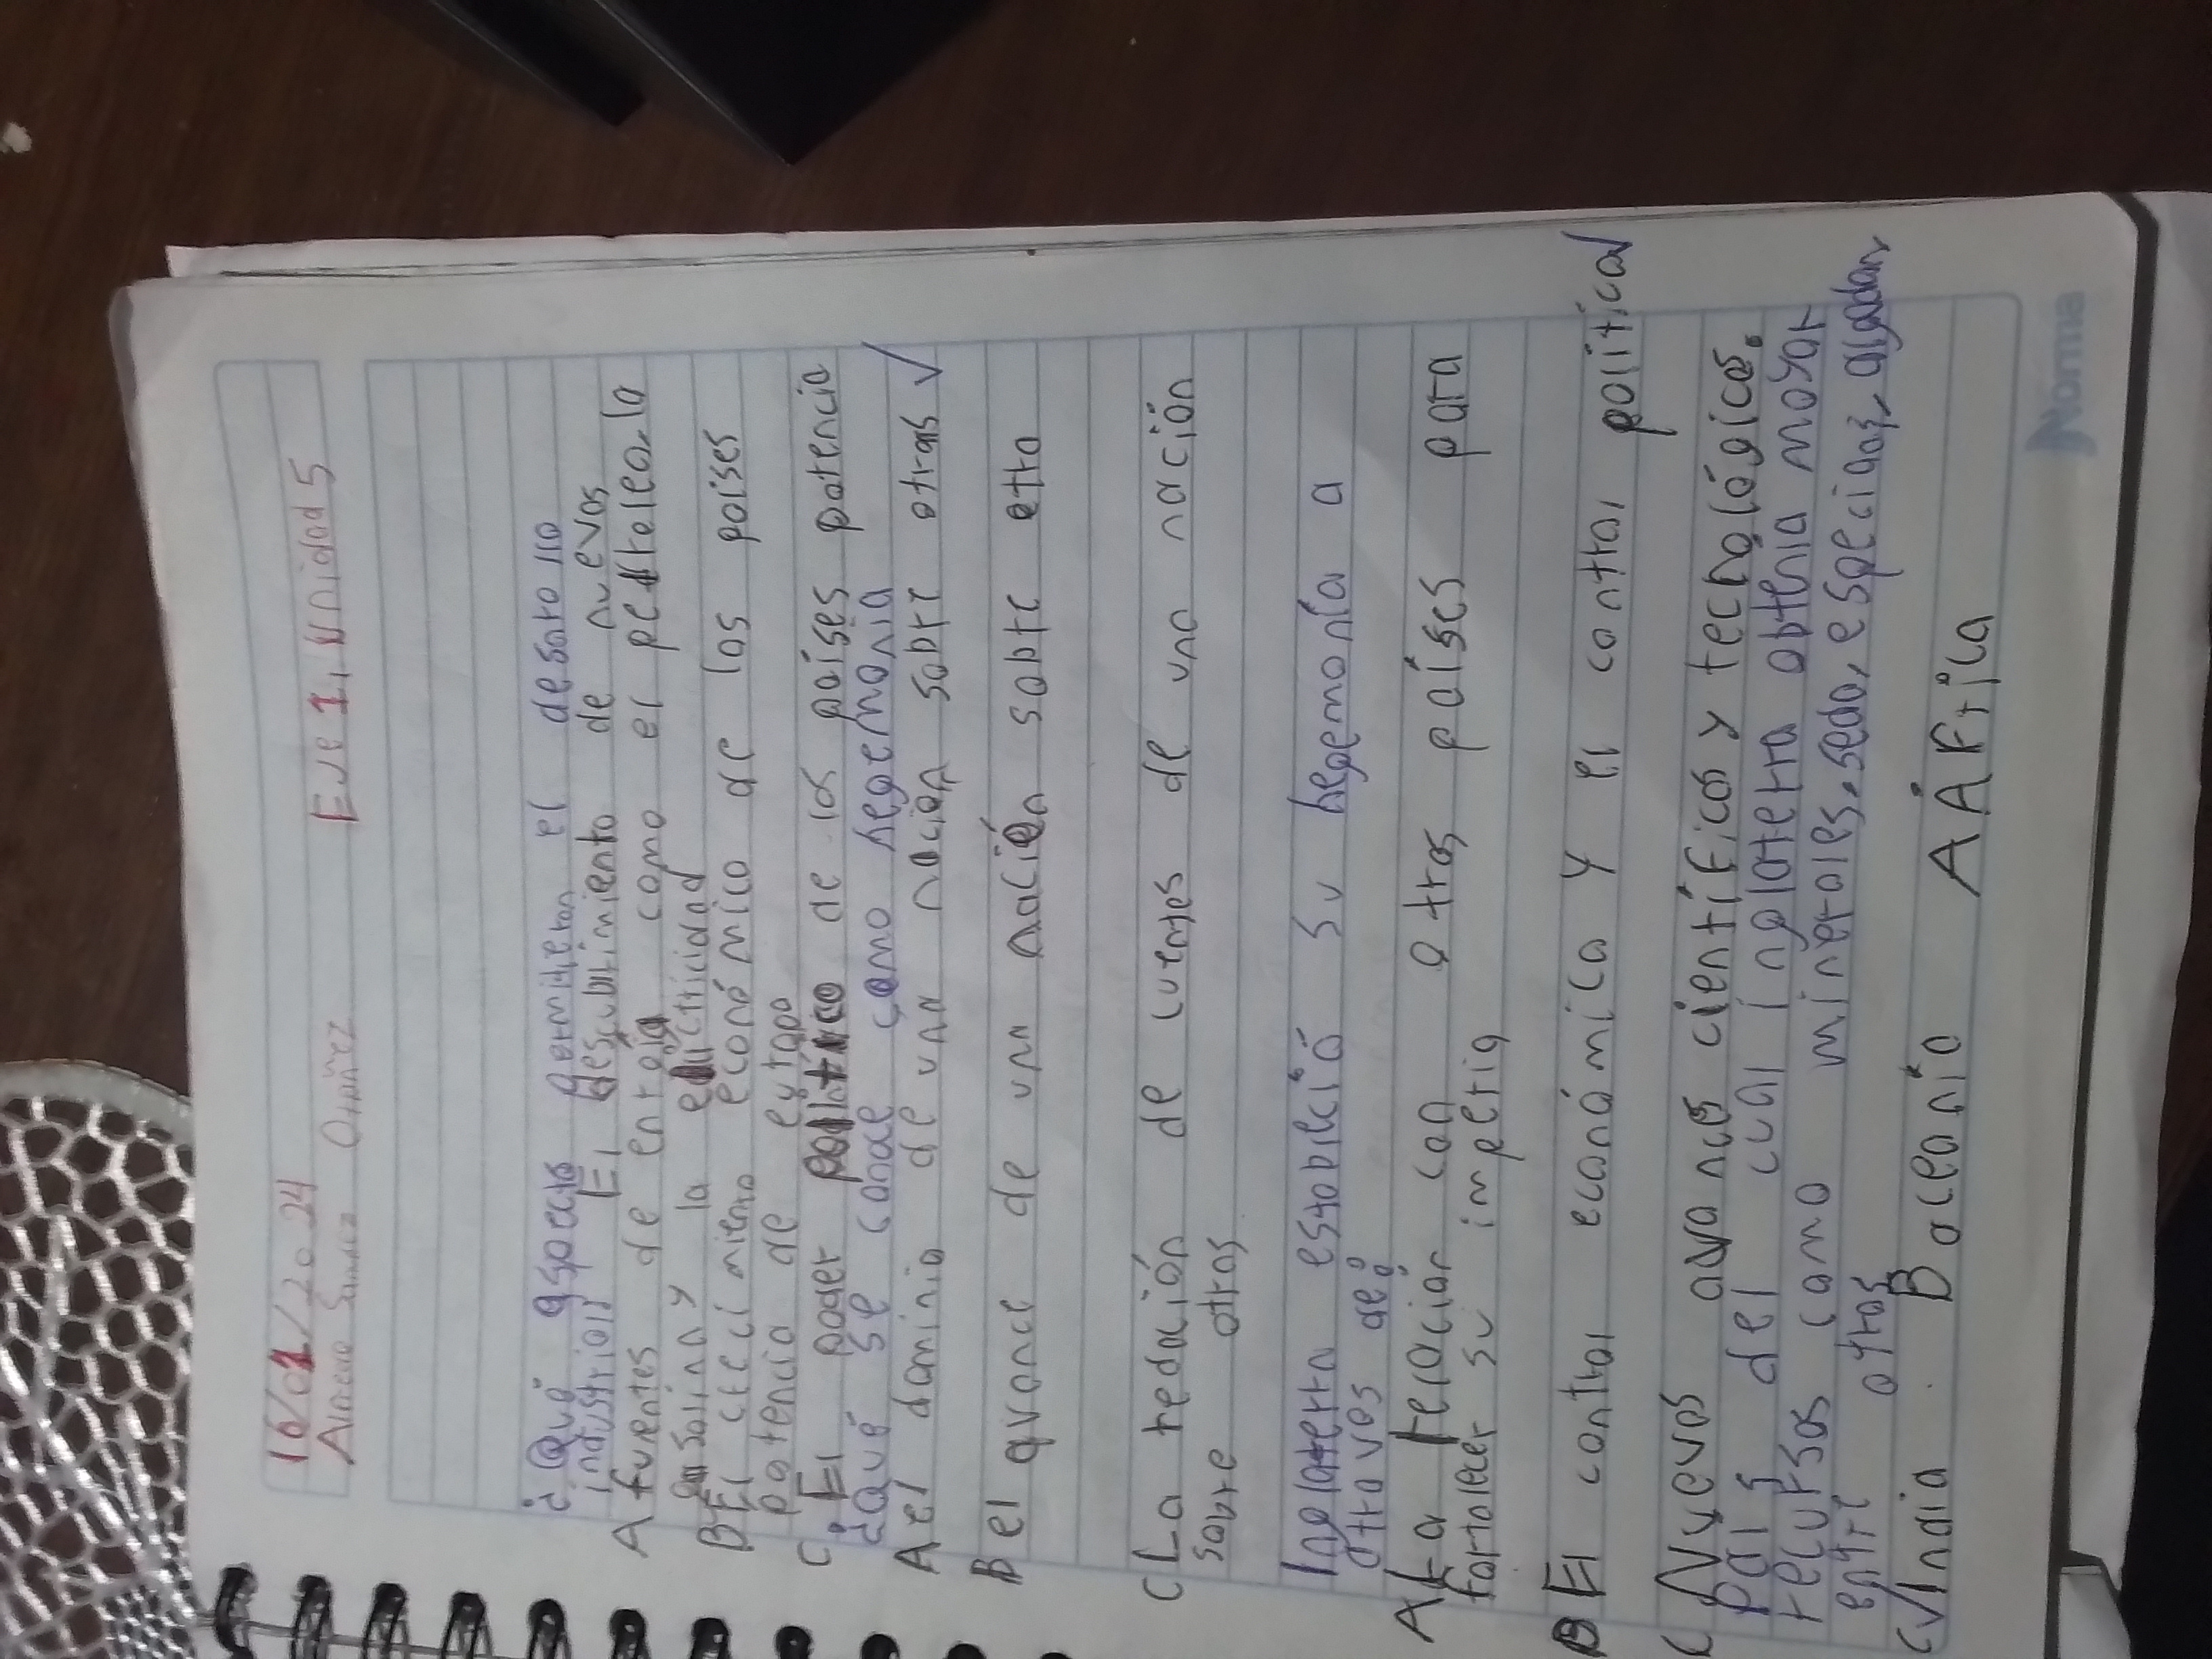 16/01/2024 Eje 1, Unidad 5
¿Qué aspectos permitieron el desarrollo
industrial? El descubrimiento de nuevos
A fuentes de energía como el petroleo, la
gasolina y la electricidad
B El crecimiento económico de los países
potencia de
C El poder político de los países potencia
¿qué se conoce como hegemonía
A el dominio de una nación sobre otras ✓
B el avance de una nación sobre otra
C La redación de cuentes de una nación
sobre otras
Inglaterra estableció su hegemonía a
através de:
A La relación con otros países para
fortalecer su
B El control económica y el control política ✓
C Nuevos avances científicos y tecnológicos.
país del cual inglaterra obtenia mayor
recursos como minerales, seda, especias, algodan
entre otras
C ✓ India B oceanía A África
Norma